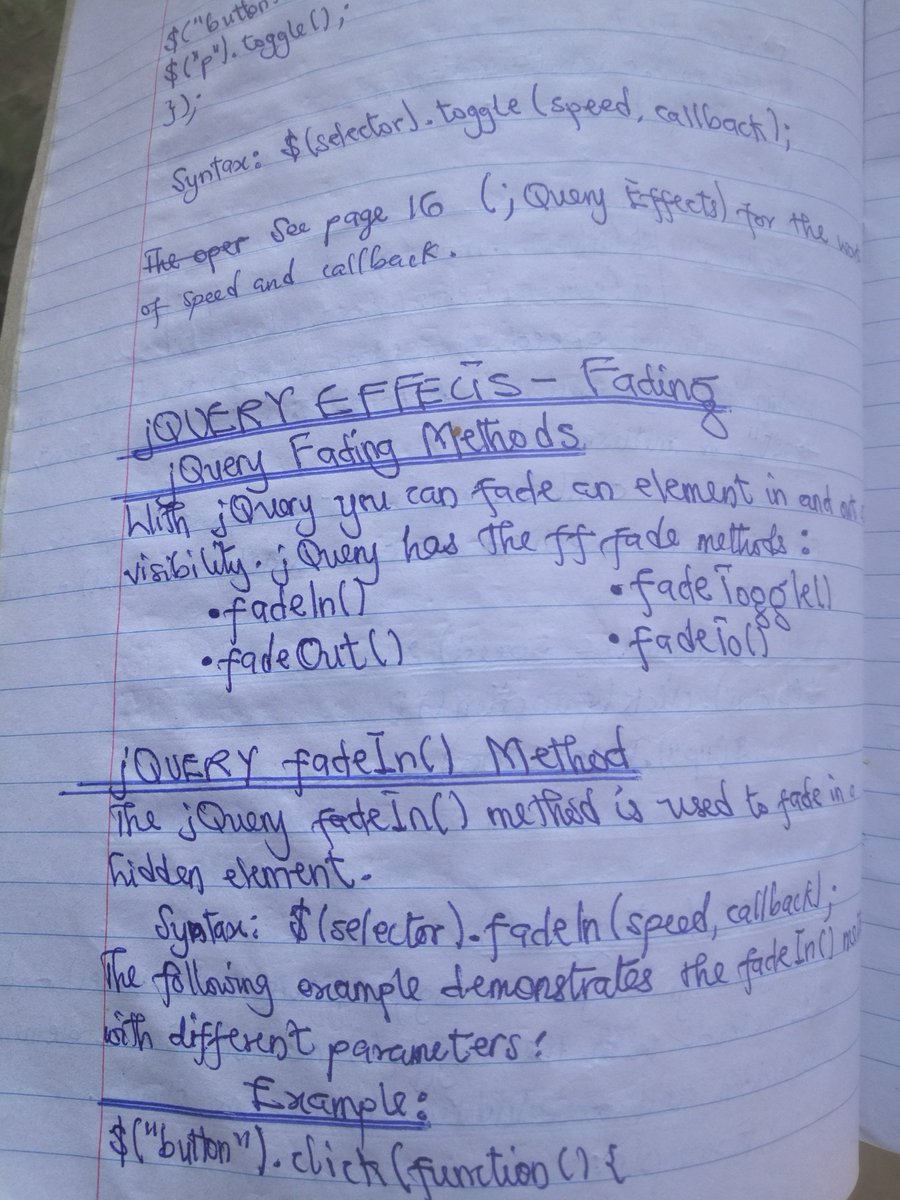 $("button"
$("p").toggle();
});
Syntax: $(selector).toggle(speed, callback);
The oper See page 16 (jQuery Effects) for the
of speed and callback.
jQUERY EFFECTS - Fading
jQuery Fading Methods
With jQuery you can fade an element in and out
visibility. jQuery has the ff fade methods:
• fadeIn() • fadeToggle()
• fadeOut() • fadeTo()
jQUERY fadeIn() Method
The jQuery fadeIn() method is used to fade in a
hidden element.
Syntax: $(selector).fadeIn(speed, callback);
The following example demonstrates the fadeIn()
with different parameters:
Example:
$("button").click(function() {